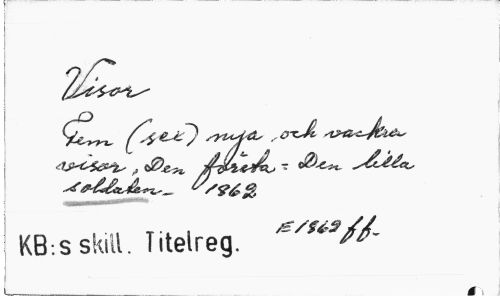 Visor
Fem (sex) nya och vackra
visor. Den första = Den lilla
soldaten_ 1862
E 1862 ff.
KB:s skill. Titelreg.